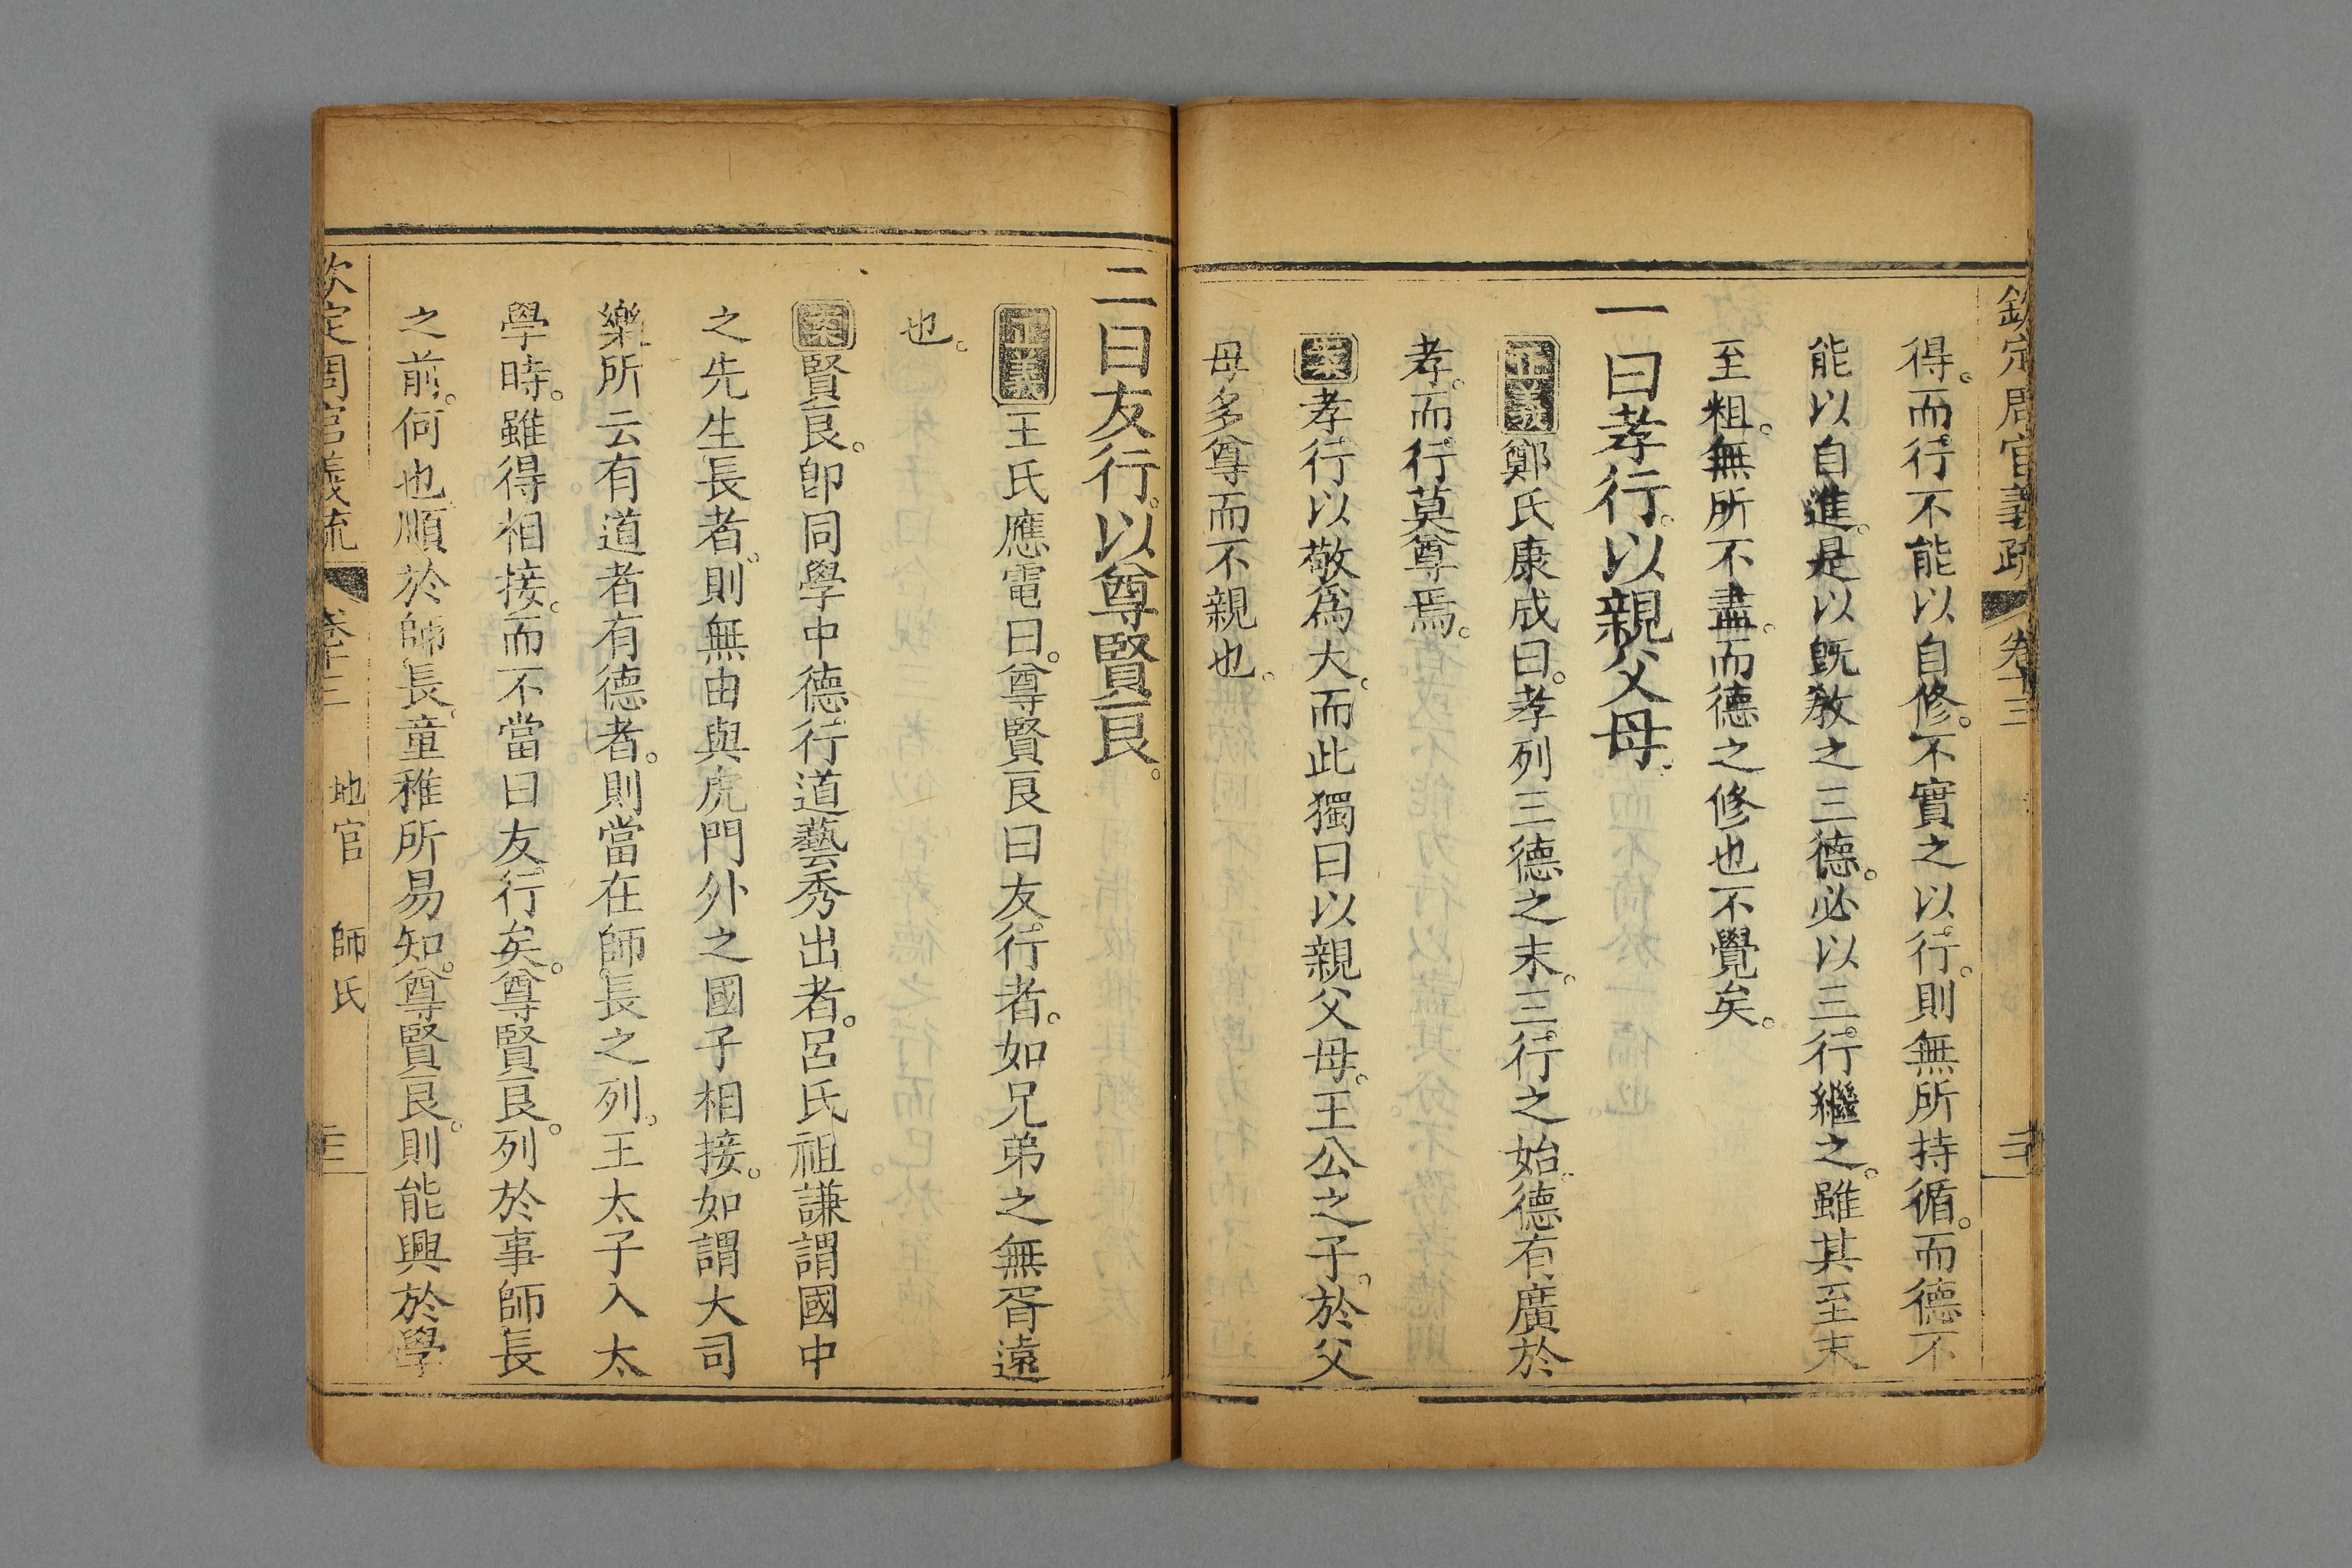 欽定周官義疏 卷十三
得。而行不能以自修。不實之以行。則無所持循。而德不
能以自進。是以既教之三德。必以三行繼之。雖其至末
至粗。無所不盡。而德之修也不覺矣。
一曰孝行。以親父母。
正義鄭氏康成曰。孝列三德之末。三行之始。德有廣於
孝。而行莫尊焉。
案孝行以敬為大。而此獨曰以親父母。王公之子。於父
母多尊而不親也。
二曰友行。以尊賢良。
正義王氏應電曰。尊賢良曰友行者。如兄弟之無胥遠
也。
案賢良。卽同學中德行道藝秀出者。呂氏祖謙謂國中
之先生長者。則無由與虎門外之國子相接。如謂大司
樂所云有道者有德者。則當在師長之列。王太子入太
學時。雖得相接。而不當曰友行矣。尊賢良。列於事師長
之前。何也順於師長。童稚所易知。尊賢良。則能興於學
欽定周官義疏 卷十三 地官 師氏